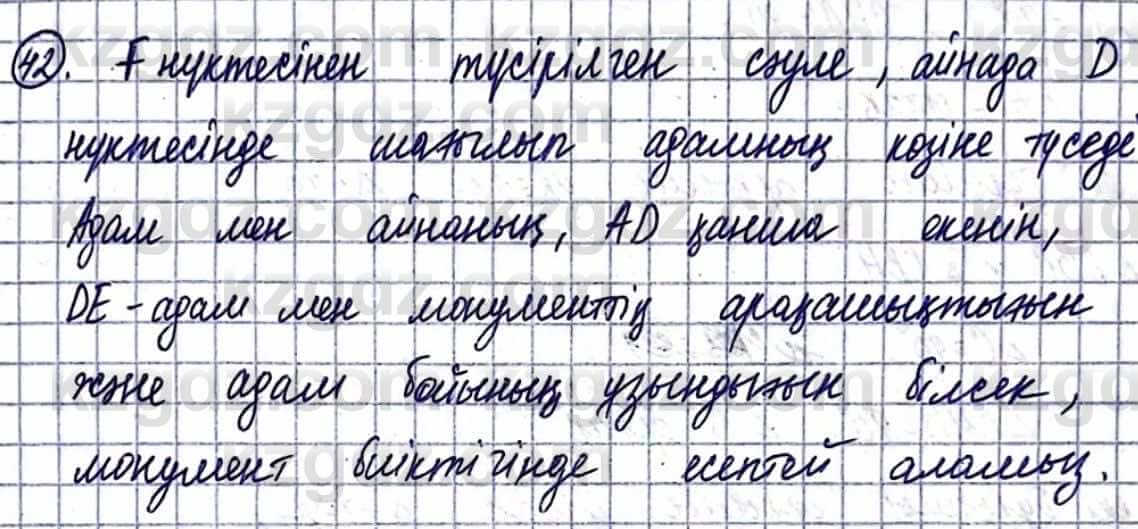 42. F нүктесінен түсірілген сәуле, айнада D
нүктесінде шағылып адамның көзіне түседе
Адам мен айнаның, AD қанша екенін,
DE - адам мен монументтің арақашықтығын
және адам бойының ұзындығын білсек,
монумент биіктігінде есептей аламыз.